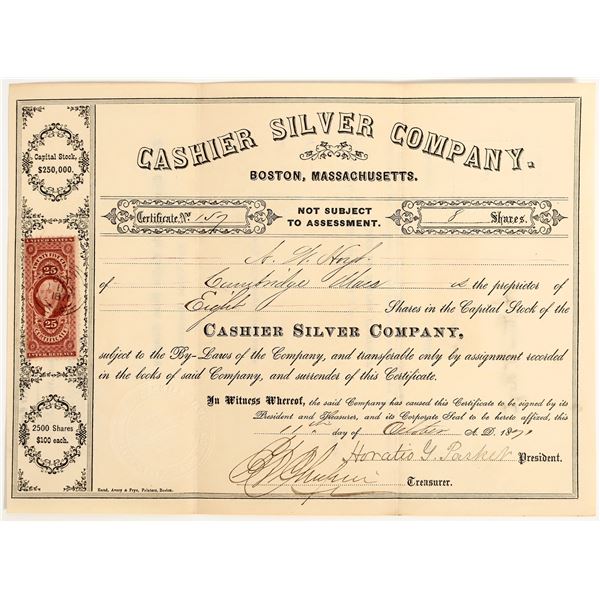 CASHIER SILVER COMPANY.
BOSTON, MASSACHUSETTS.
Capital Stock,
$250,000.
Certificate, No. 157
NOT SUBJECT
TO ASSESSMENT.
8 Shares.
of Cambridge Mass is the proprietor of
Eight Shares in the Capital Stock of the
CASHIER SILVER COMPANY,
subject to the By-Laws of the Company, and transferable only by assignment recorded
in the books of said Company, and surrender of this Certificate.
In Witness Whereof, the said Company has caused this Certificate to be signed by its
President and Treasurer, and its Corporate Seal to be hereto affixed, this
11th day of October A. D. 187
Horatio G. Parker President.
Treasurer.
25
25
CERTIFICATE
INTER. REVENUE
2500 Shares
$100 each.
Rand, Avery & Frye, Printers, Boston.